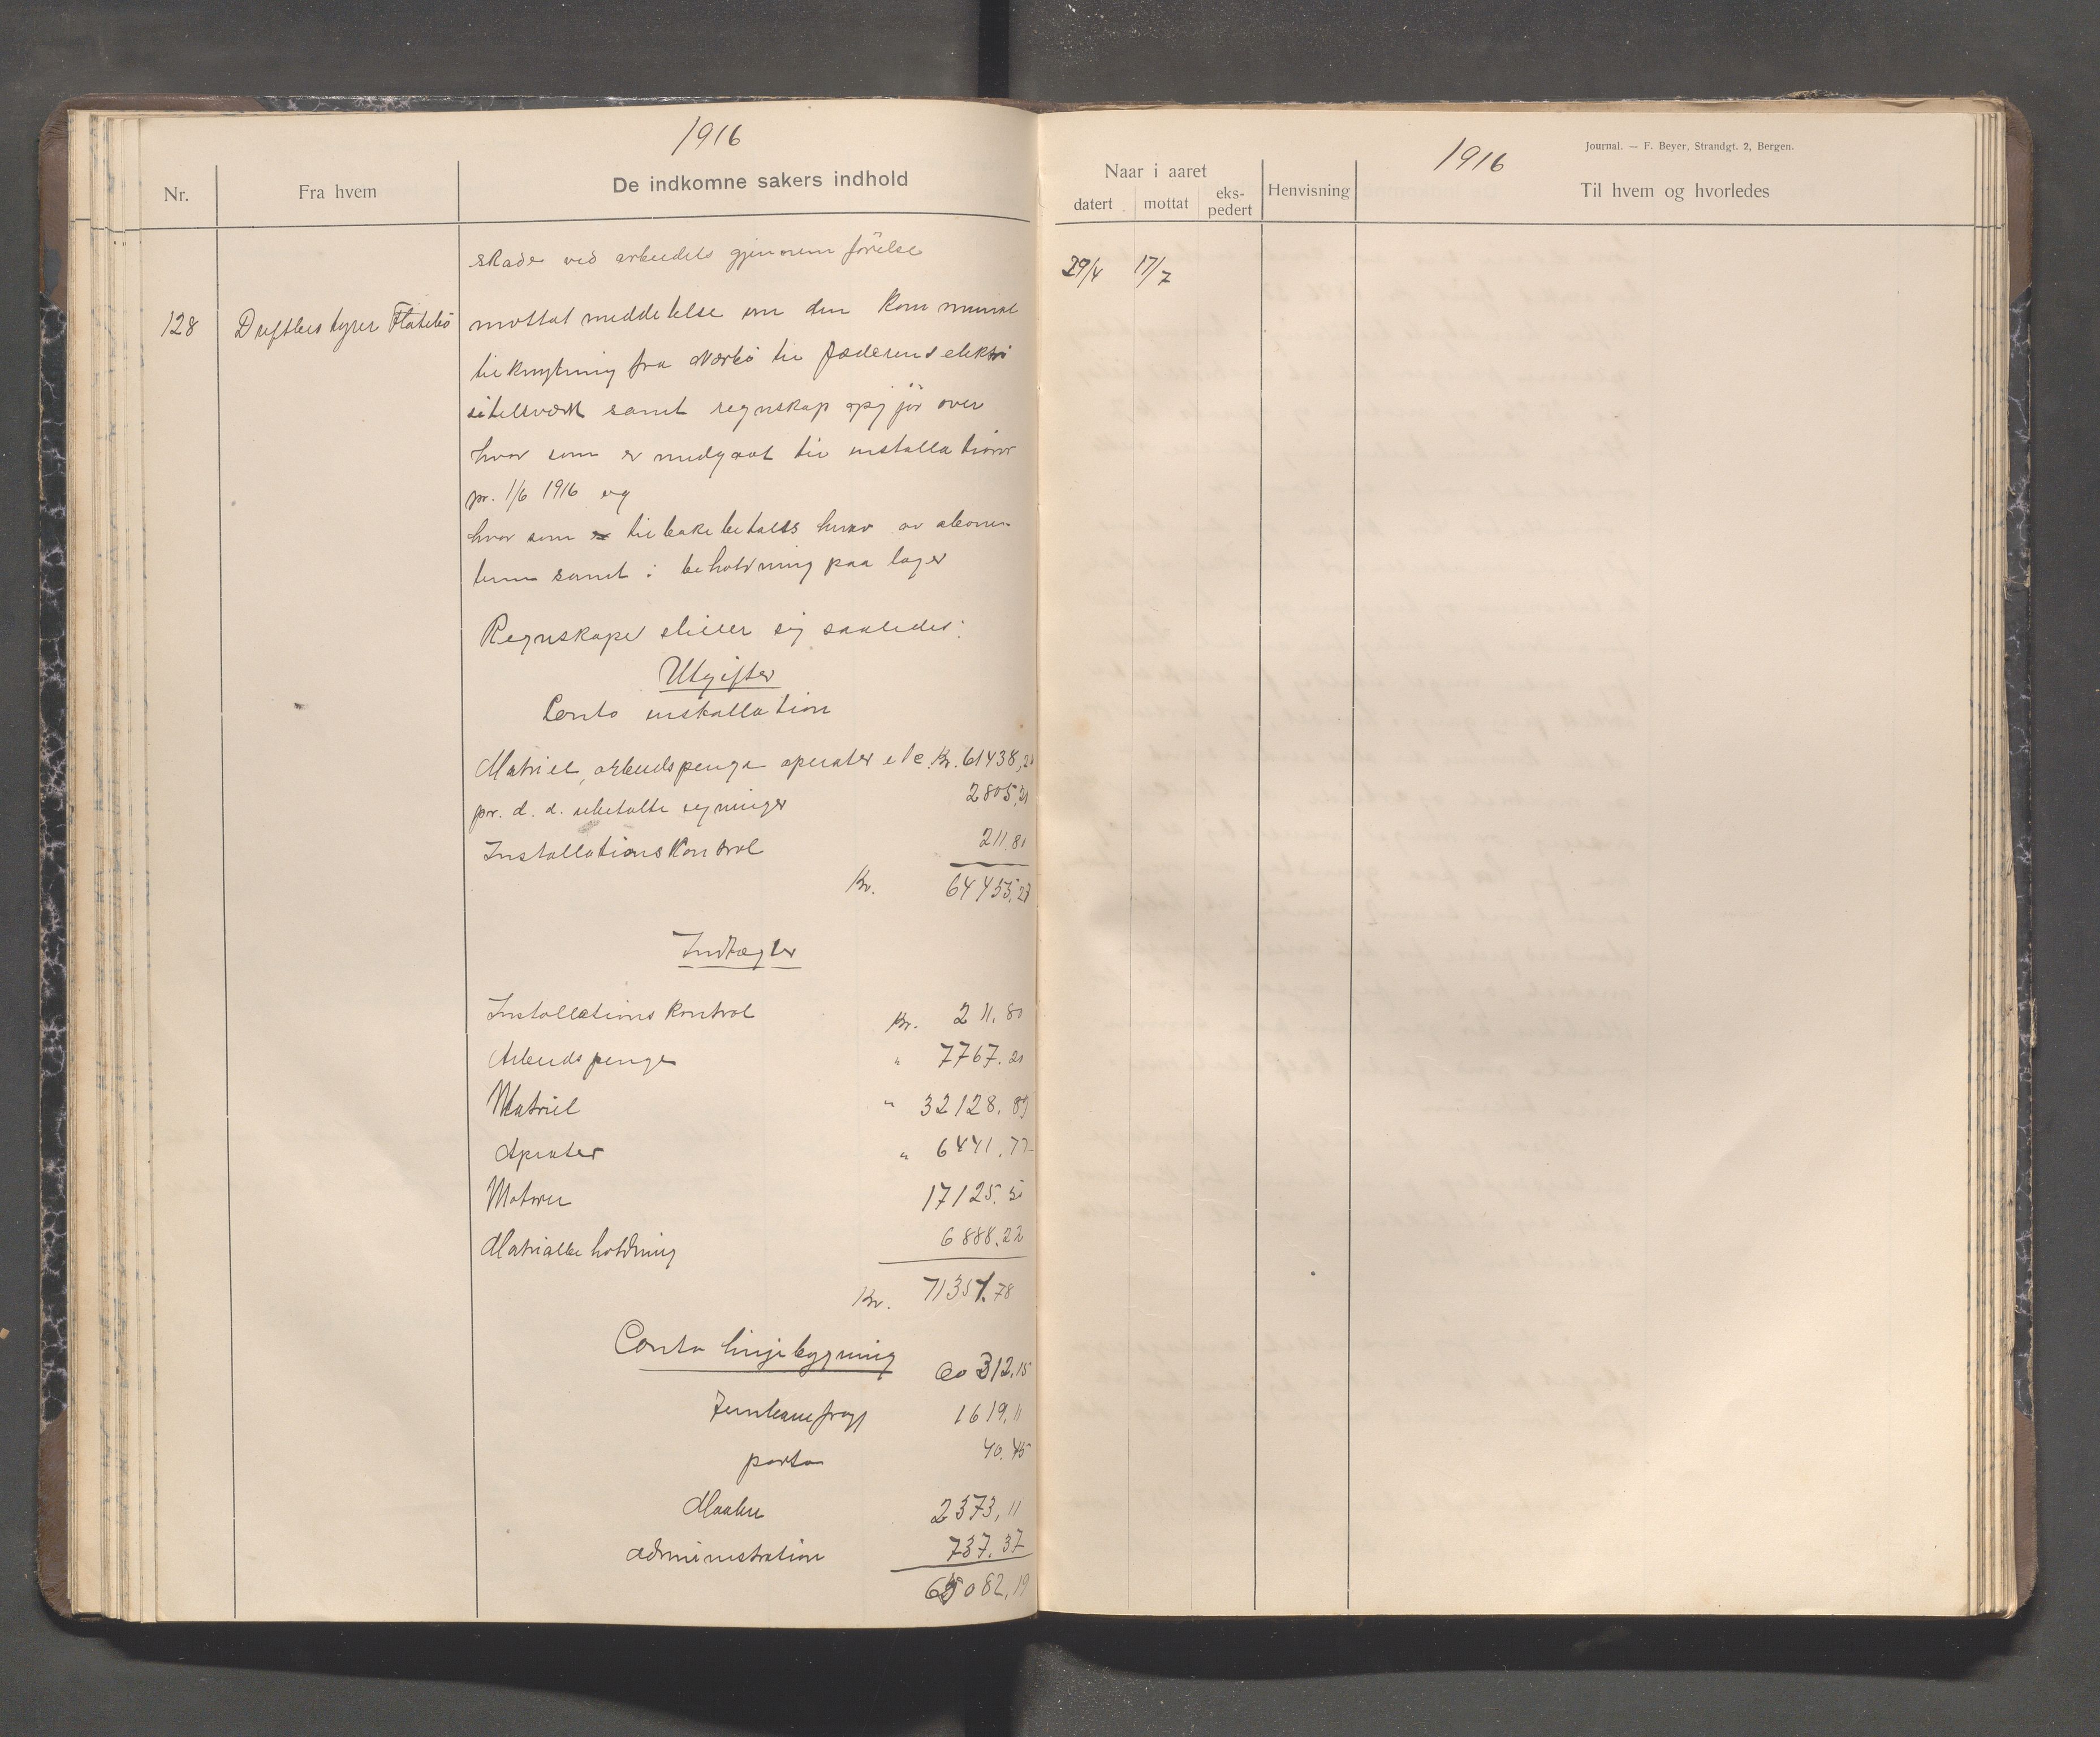 1916
Nr.
Fra hvem
De indkomne sakers indhold
skade ved arbeidets gjennem förelse
128 Driftbestyrer Flatebö mottat meddelelse om den kommunal
tilknytning fra Nærbö til Jæderens elektri
sitetsværk samt regnskap opgjör over
hvor som er medgaat til installationer
pr. 1/6 1916 og
hvor som tilbakebetales herav av abonen
terne samt i beholdning paa lager
Regnskapet stiller sig saaledes:
Utgifter
Conto installation
Matriel, arbeidspenge aperater etc. Kr. 61438,20
pr. d. d. ubetalte regninger 2805,21
Installationskontrol 211.80
Kr. 64455.21
Indtægter
Installationskontrol Kr. 211.80
Arbeidspenge " 7767.20
Matriel " 32128.89
Aperater " 6441.77
Motorer 17125.50
Matrialbeholdning 6888.22
Kr. 71351.78
Conto linjebygning 60312.15
Jernbanefragt 1619.11
porto 40.45
Maalere 2373,11
administration 737.37
65082,19
1916
Journal. — F. Beyer, Strandgt. 2, Bergen.
Naar i aaret
datert
mottat
eks-
pedert
Henvisning
Til hvem og hvorledes
29/4 17/7